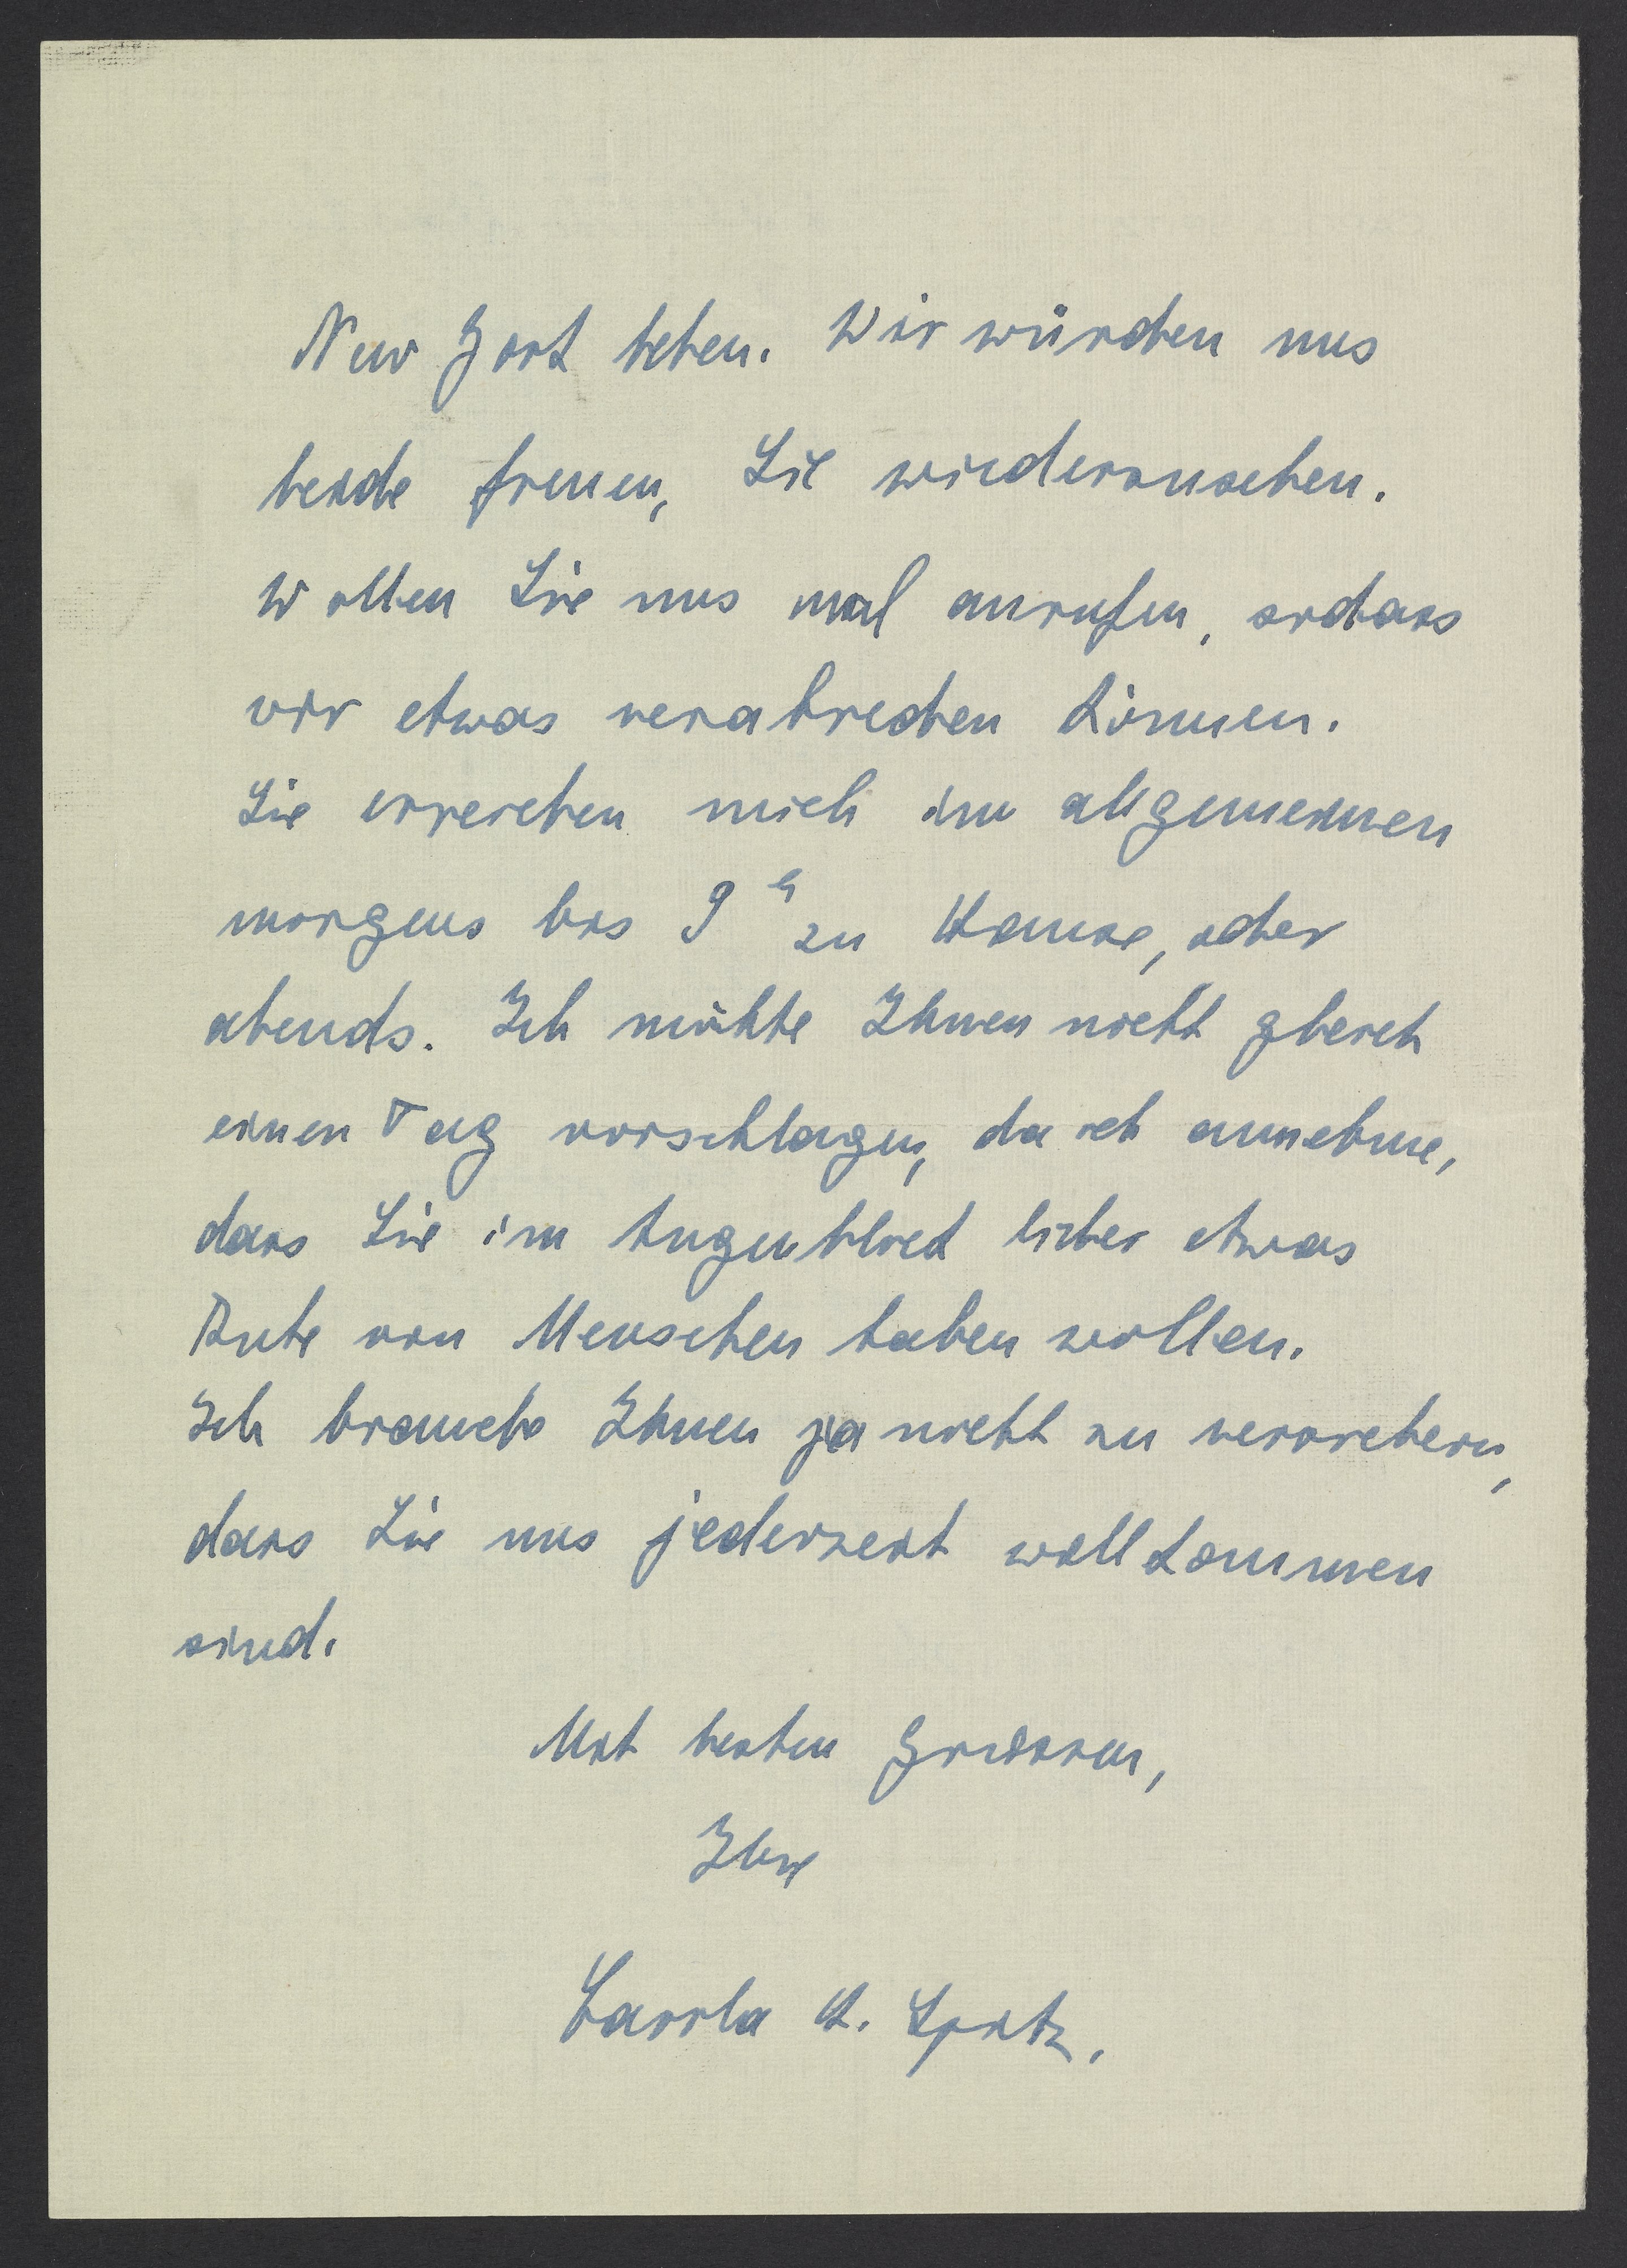 New York leben. Wir würden uns
beide freuen, Sie wiederzusehen.
Wollen Sie uns mal anrufen, sodass
wir etwas verabreden können.
Sie erreichen mich im allgemeinen
morgens bis 9 h zu Hause, oder
abends. Ich möchte Ihnen nicht gleich
einen Tag vorschlagen, da ich annehme,
dass Sie im Augenblick lieber etwas
Ruhe von Menschen haben wollen.
Ich brauche Ihnen ja nicht zu versichern,
dass Sie uns jederzeit willkommen
sind.
Mit besten Grüssen,
Ihre
Carola H. Spitz.